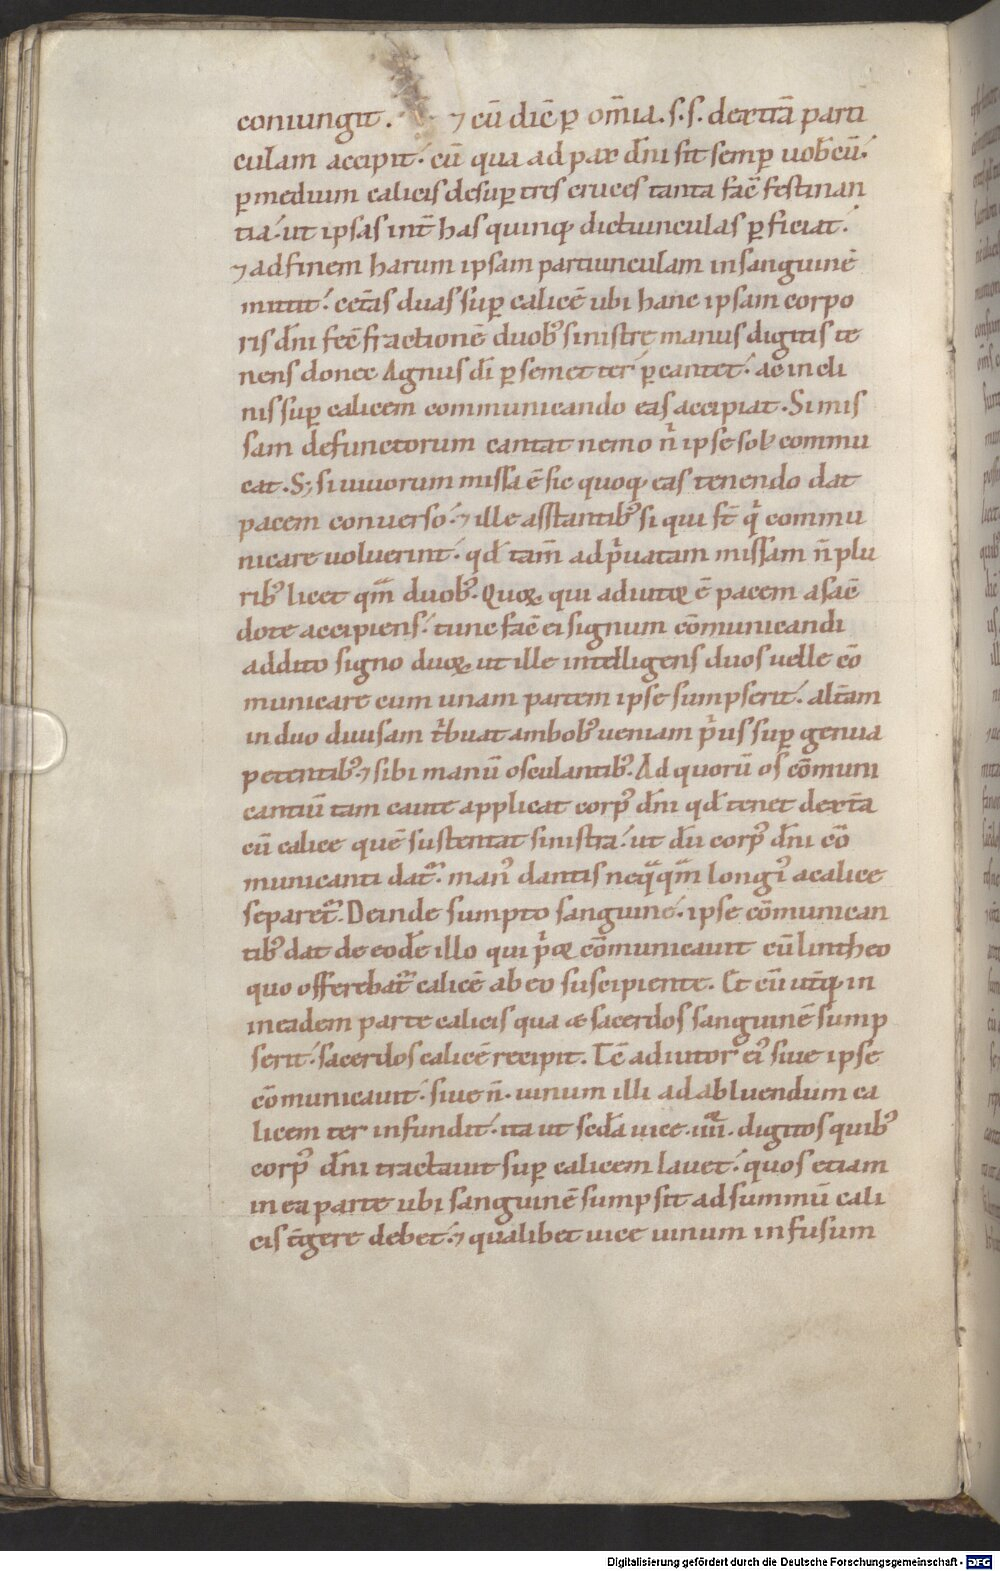 coniungit. ⁊ cū dic̄ ꝑ om̄ia. s. s. dextrā parti
culam accipit. cū qua ad pax dn̄i sit semꝑ uobcū.
ꝑ medium calicis desuꝑ tres cruces tanta fac̄ festinan
tia. ut ipsas int̄ has quinqꝫ dictiunculas ꝑficiat.
⁊ ad finem harum ipsam partiunculam in sanguinē
mittit. cet̄as duas suꝑ calicē ubi hanc ipsam corpo
ris dn̄i fec̄ fractionē duobꝰ sinistrę manus digitis te
nens donec Agnus dī ꝑ semet ter ꝑcantet. ac incli
nis suꝑ calicem communicando eas accipiat. Si mis
sam defunctorum cantat nemo n̄ ipse sol᷒ commu
cat. Sꝫ si uiuorum missa ē sic quoqꝫ eas tenendo dat
pacem conuerso. ⁊ ille asstantibꝰ si qui st̄ q̇ commu
nicare uoluerint. qd̄ tam̄ ad ṗuatam missam n̄ plu
ribꝰ licet qm̄ duobꝰ. Quoꝝ qui adiutor ē pacem a sac̄
dote accipiens. tunc fac̄ ei signum cōmunicandi
addito signo duoꝝ ut ille intelligens duos uelle cō
municare cum unam partem ipse sumpserit. alt̄am
in duo diuisam ṫbuat ambobꝰ ueniam ṗus suꝑ genua
petentibꝰ ⁊ sibi manū osculantibꝰ. Ad quorū os cōmuni
cantiū tam caute applicat corpꝰ dn̄i qd̄ tenet dext̄a
cū calice quē sustentat sinistra. ut dū corpꝰ dn̄i cō
municanti dat᷑. manꝰ dantis neq̈qm̄ longiꝰ a calice
separet᷑. Deinde sumpto sanguine. ipse cōmunican
tibꝰ dat de eodē illo qui ṗor cōmunicauit cū lintheo
quo offerebat᷑ calicē ab eo suscipiente. Et cū ut̄qꝫ in
in eadem parte calicis qua & sacerdos sanguinē sump
serit. sacerdos calicē recipit. Tc̄ adiutor eiꝰ siue ipse
cōmunicauit. siue n̄. uinum illi ad abluendum ca
licem ter infundit. ita ut scd̄a uice .iiii. digitos quibꝰ
corpꝰ dn̄i tractauit suꝑ calicem lauet. quos etiam
in ea parte ubi sanguinē sumpsit ad summū cali
cis t̄gere debet. ⁊ qualibet uice uinum infusum
Digitalisierung gefördert durch die Deutsche Forschungsgemeinschaft - DFG